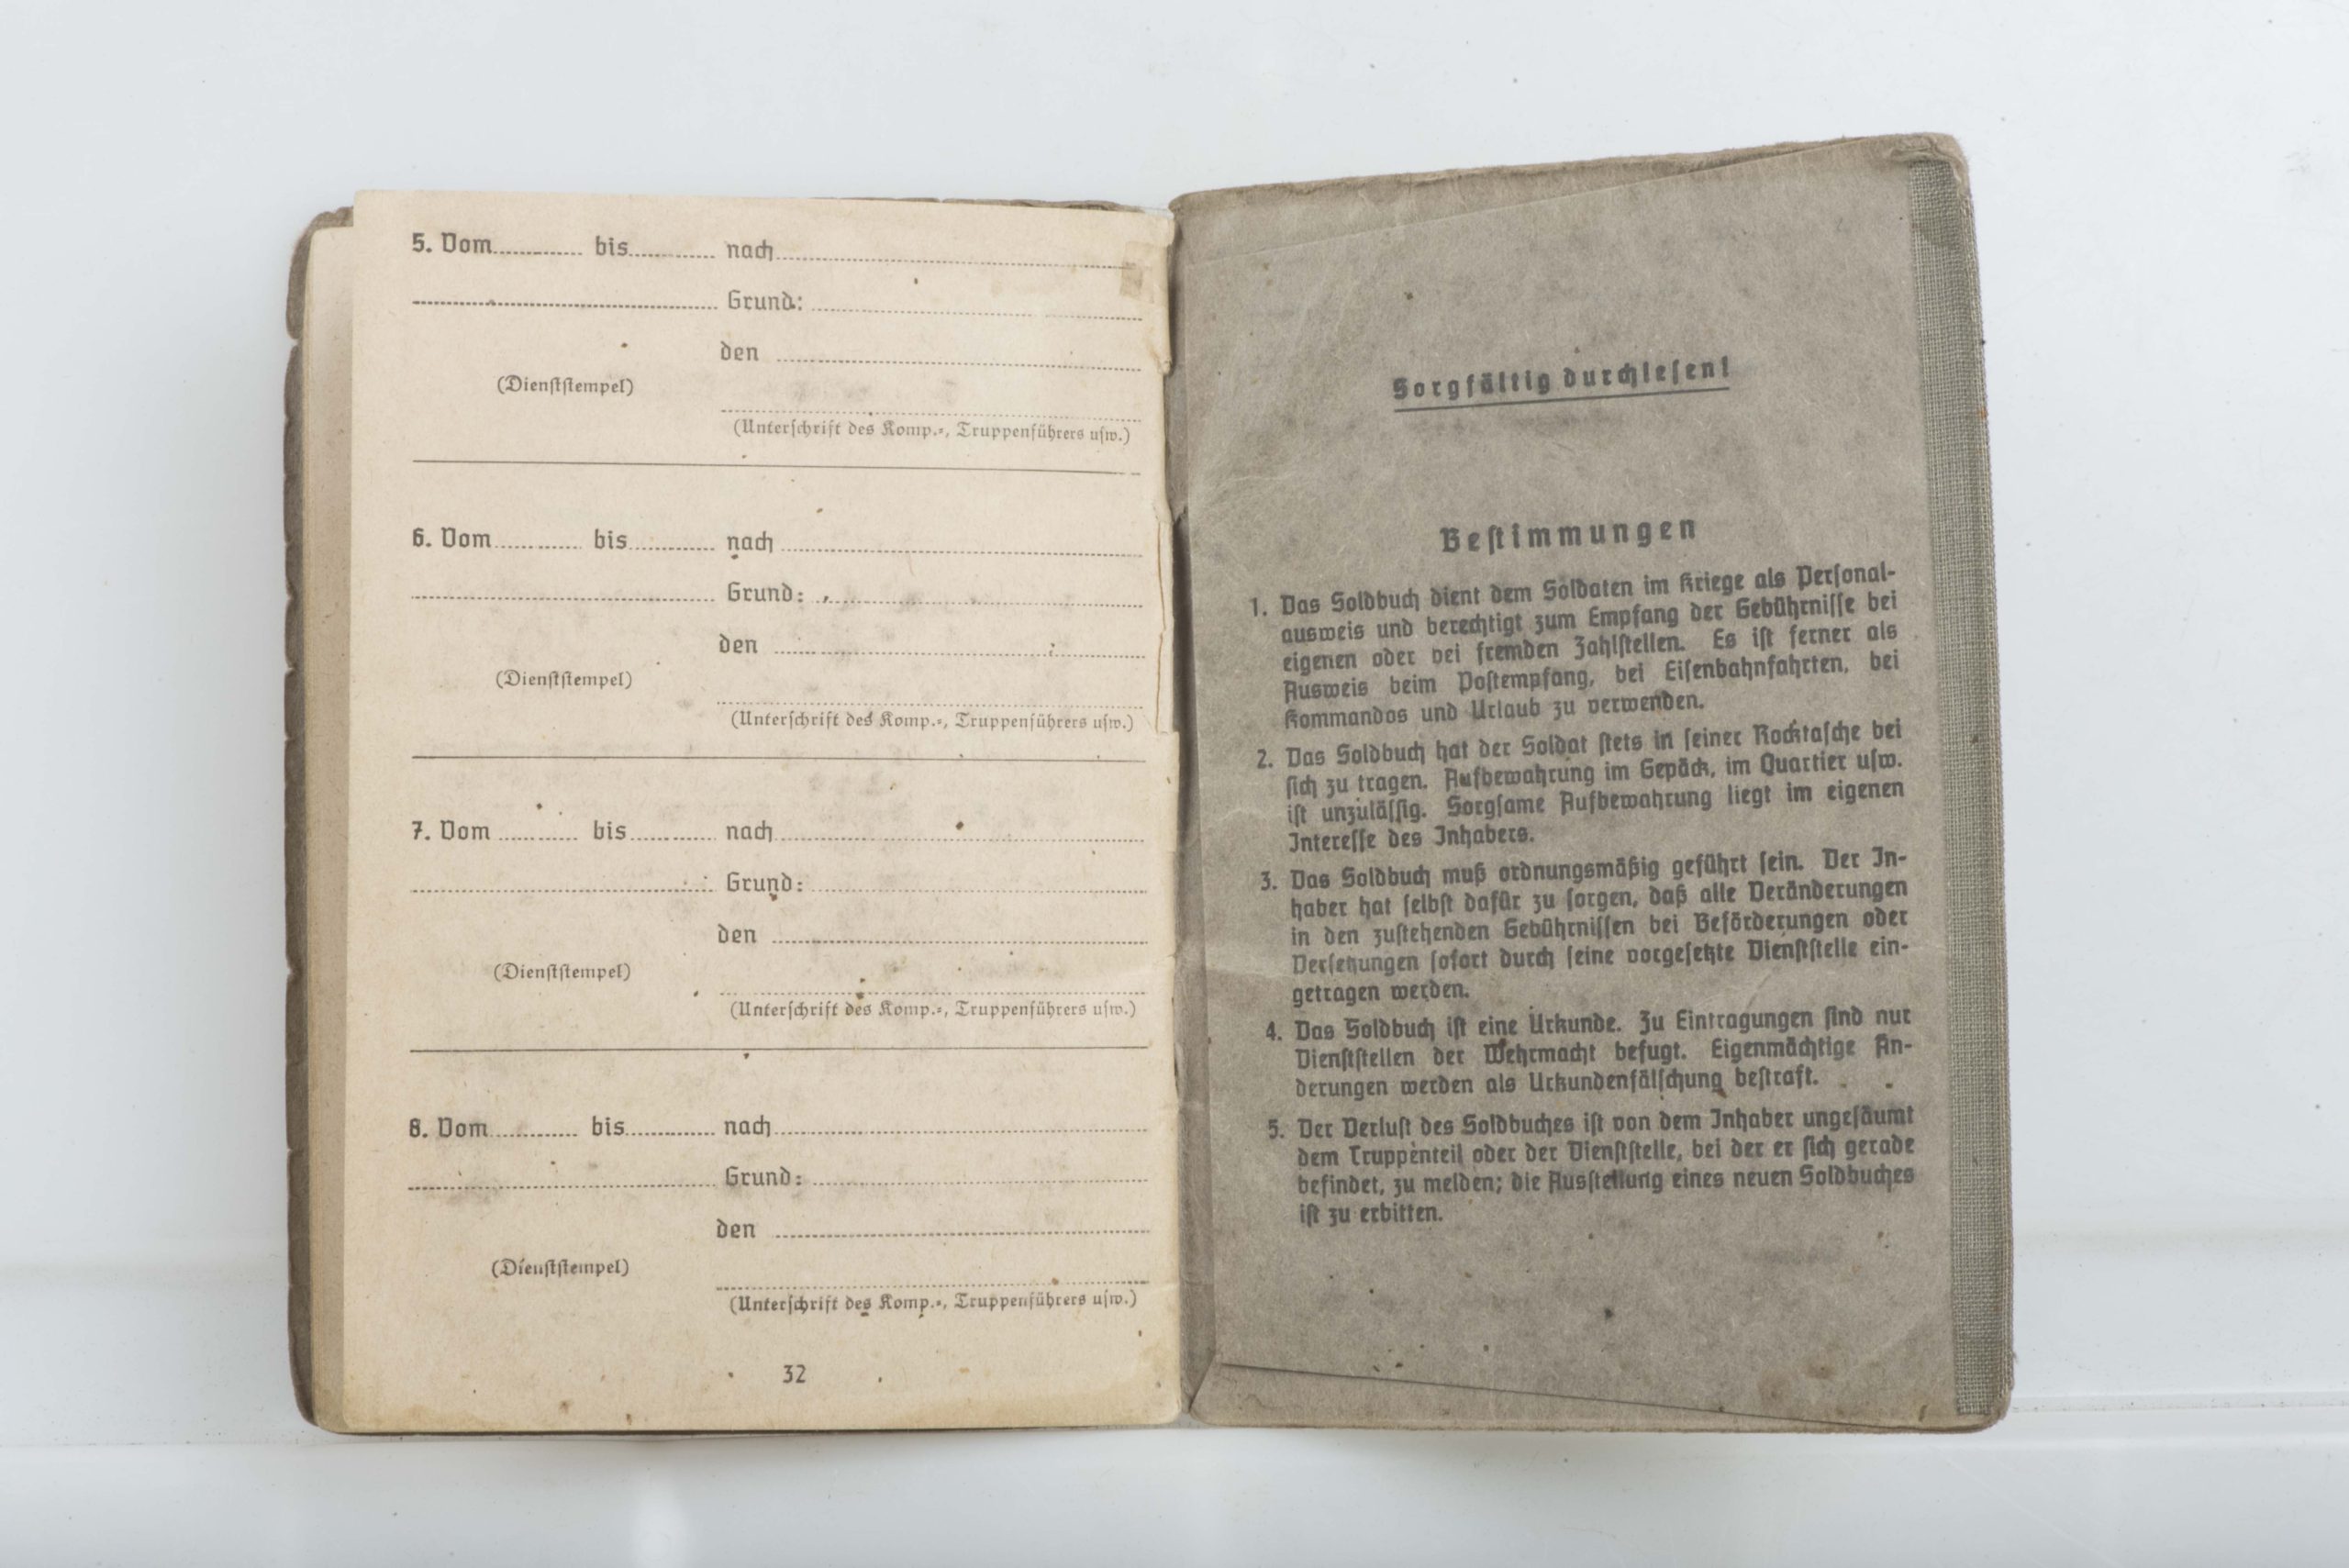 5. Vom............ bis............ nach............
............ Grund: ............
den ............
(Dienststempel)
(Unterschrift des Komp.-, Truppenführers usw.)
6. Vom............ bis............ nach............
............ Grund: ............
den ............
(Dienststempel)
(Unterschrift des Komp.-, Truppenführers usw.)
7. Vom............ bis............ nach............
............ Grund: ............
den ............
(Dienststempel)
(Unterschrift des Komp.-, Truppenführers usw.)
8. Vom............ bis............ nach............
............ Grund: ............
den ............
(Dienststempel)
(Unterschrift des Komp.-, Truppenführers usw.)
32
Sorgfältig durchlesen!
Bestimmungen
1. Das Soldbuch dient dem Soldaten im Kriege als Personal-
ausweis und berechtigt zum Empfang der Gebührnisse bei
eigenen oder bei fremden Zahlstellen. Es ist ferner als
Ausweis beim Postempfang, bei Eisenbahnfahrten, bei
Kommandos und Urlaub zu verwenden.
2. Das Soldbuch hat der Soldat stets in seiner Rocktasche bei
sich zu tragen. Aufbewahrung im Gepäck, im Quartier usw.
ist unzulässig. Sorgsame Aufbewahrung liegt im eigenen
Interesse des Inhabers.
3. Das Soldbuch muß ordnungsmäßig geführt sein. Der In-
haber hat selbst dafür zu sorgen, daß alle Veränderungen
in den zustehenden Gebührnissen bei Beförderungen oder
Versetzungen sofort durch seine vorgesetzte Dienststelle ein-
getragen werden.
4. Das Soldbuch ist eine Urkunde. Zu Eintragungen sind nur
Dienststellen der Wehrmacht befugt. Eigenmächtige Än-
derungen werden als Urkundenfälschung bestraft.
5. Der Verlust des Soldbuches ist von dem Inhaber ungesäumt
dem Truppenteil oder der Dienststelle, bei der er sich gerade
befindet, zu melden; die Ausstellung eines neuen Soldbuches
ist zu erbitten.